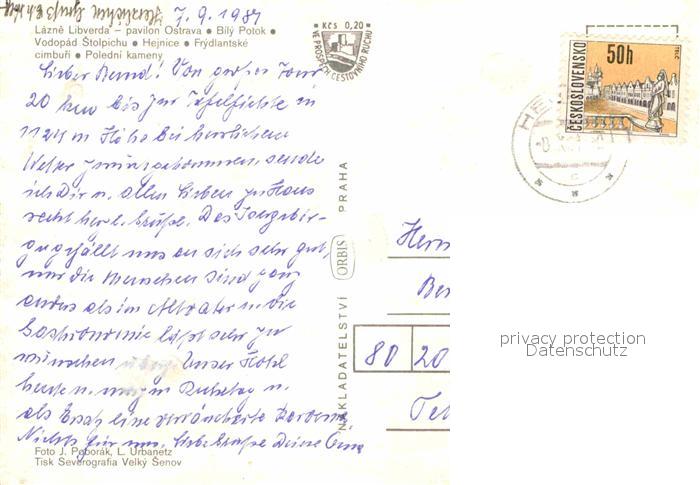 Herzlichen Gruß
7.9.1987
Lázně Libverda – pavilon Ostrava • Bílý Potok •
Vodopád Štolpichu • Hejnice • Frýdlantské
cimbuří • Polední kameny
Kčs 0,20
VE PROSPĚCH CESTOVNÍHO RUCHU
ČESKOSLOVENSKO
50h
TELČ
Lieber Bernd! Von großer Tour
20 km bis zur Tafelfichte in
1124 m Höhe bei herrlichem
Wetter zurückgekommen, sende
ich Dir u. allen Lieben zu Haus
recht herzl. Grüße. Das Isergebir-
ge gefällt uns an sich sehr gut,
nur die Menschen sind ganz
anders als im Altvater u. die
Gastronomie läßt sehr zu
wünschen übrig. Unser Hotel
heute u. morgen Ruhetag u.
als Ersatz eine verräucherte
Nichts für uns. Liebe Grüße Deine Oma
NAKLADATELSTVÍ ORBIS PRAHA
Ber
80 20
Foto J. Paborák, L. Urbanetz
Tisk Severografia Velký Šenov
privacy protection
Datenschutz